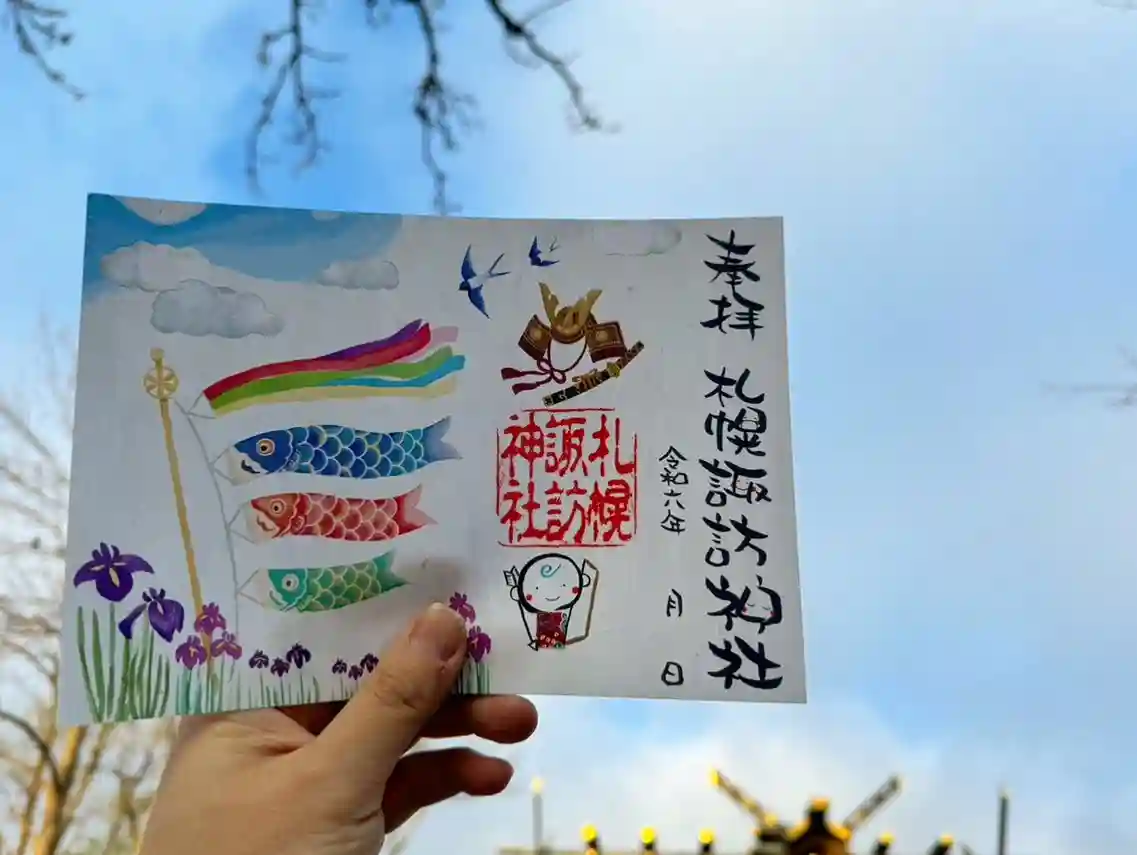 奉拝 札幌諏訪神社
令和六年 月 日
札幌
諏訪
神社